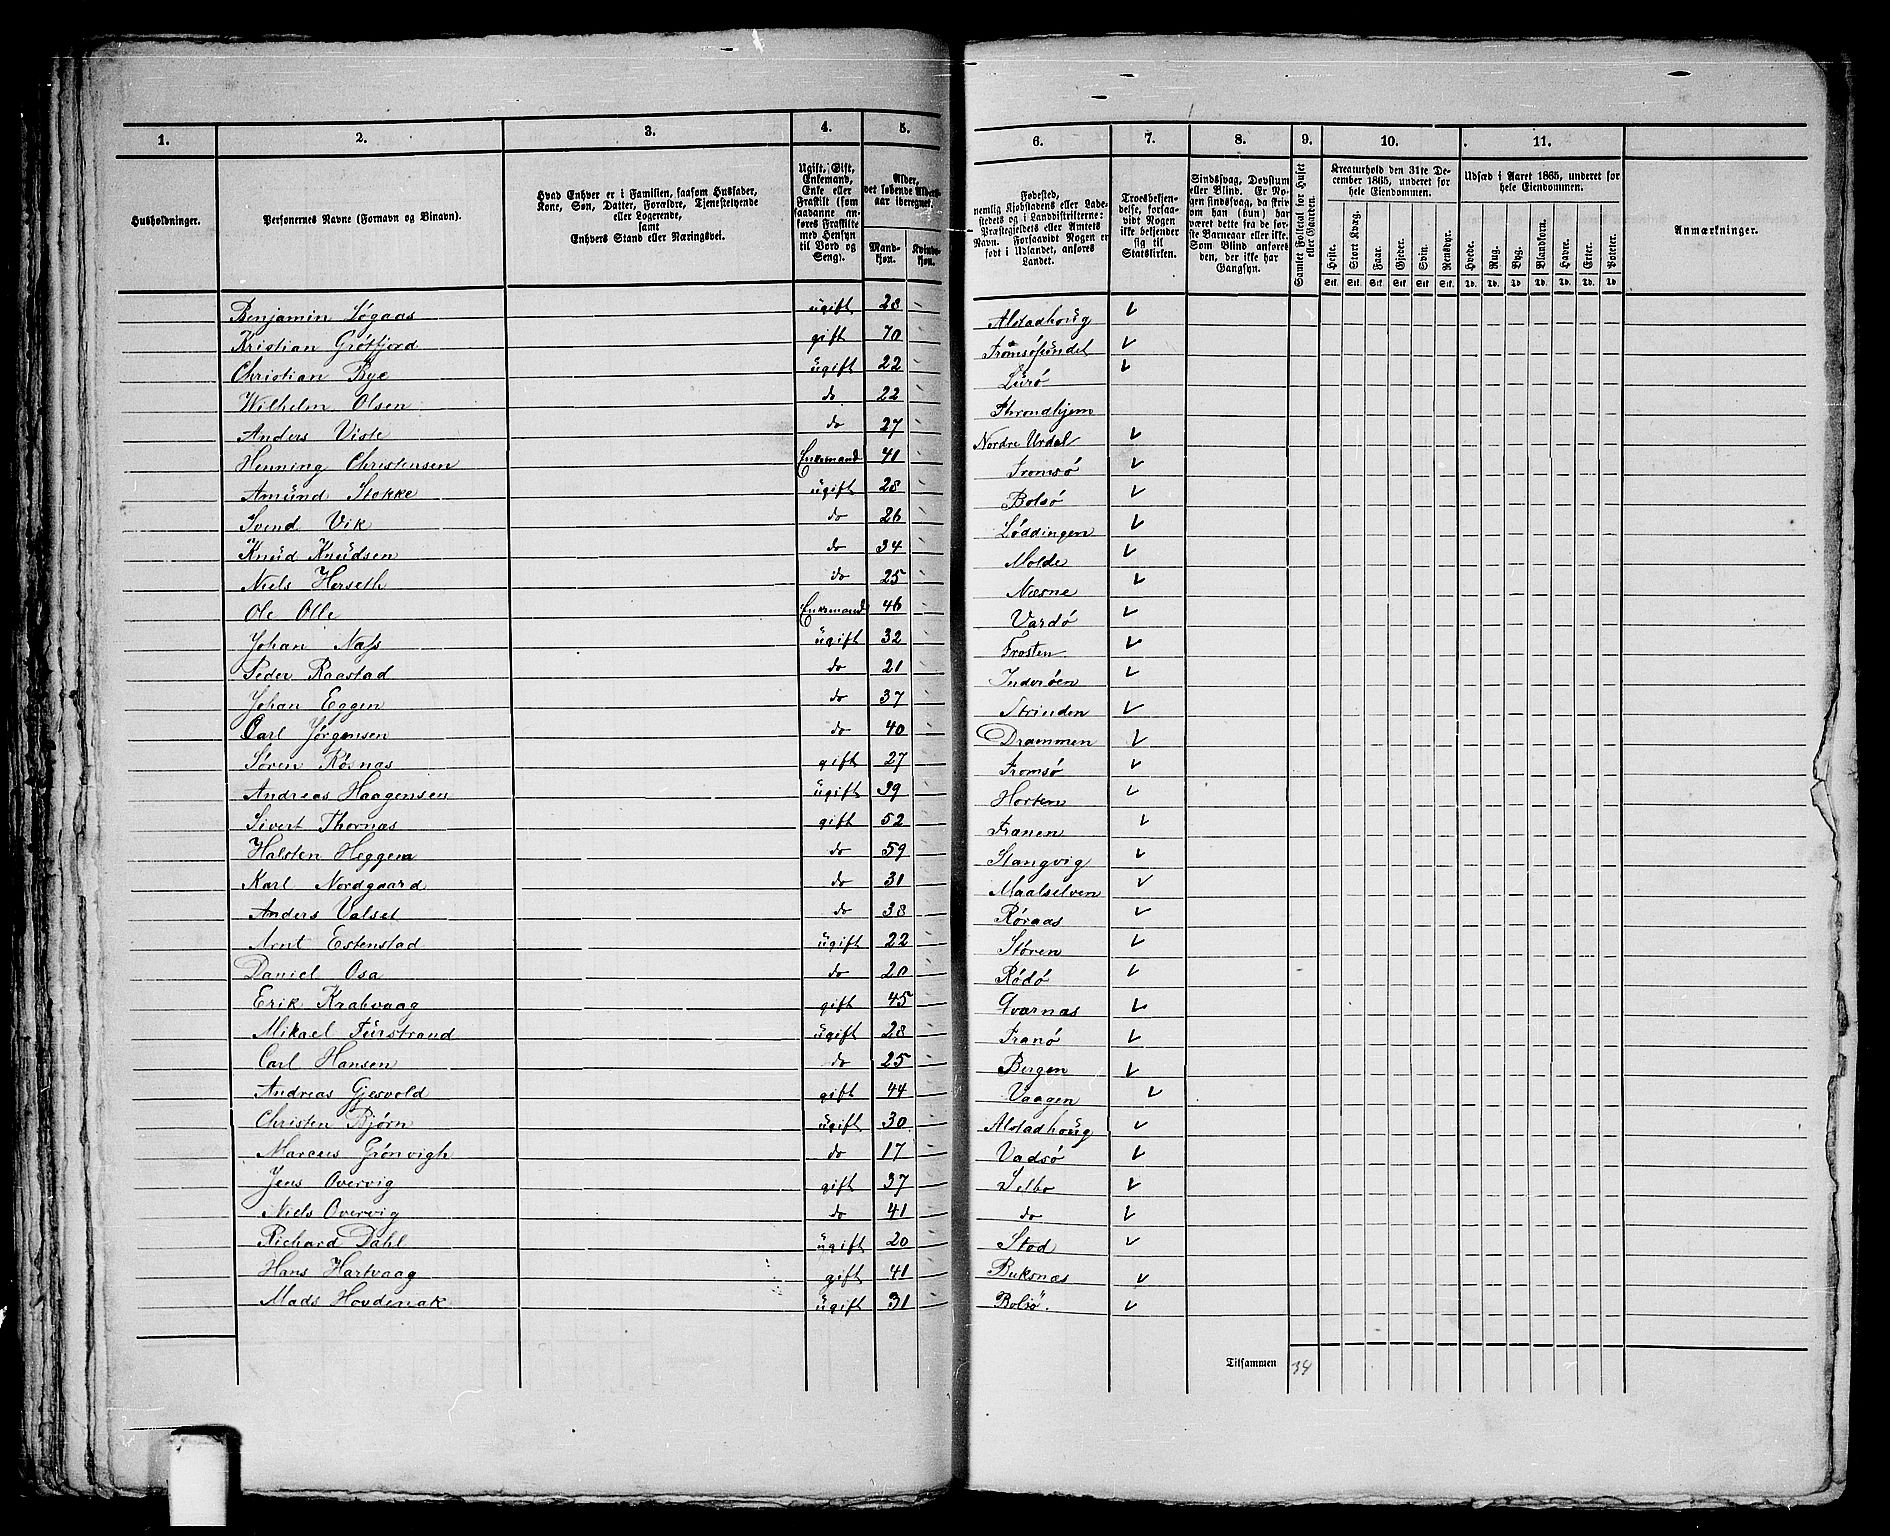 1. 2. 3. 4. 5. 6. 7. 8. 9. 10. 11.
Husholdninger.
Personernes Navne (Fornavn og Binavn).
Hvad Enhver er i Familien, saasom Husfader,
Kone, Søn, Datter, Forældre, Tjenestetyende
eller Logerende,
samt
Enhvers Stand eller Næringsvei.
Ugift, Gift,
Enkemand,
Enke eller
Fraskilt (som
saadanne an-
føres Fraskilte
med Hensyn
til Bord og
Seng).
Alder,
det løbende Alders-
aar iberegnet.
Mand-
kjøn.
Kvinde-
kjøn.
Fødested,
nemlig Kjøbstadens eller Lade-
stedets og i Landdistrikterne:
Præstegjeldets eller Amtets
Navn. Forsaavidt Nogen er
født i Udlandet, anføres
Landet.
Troesbekjen-
delse, forsaa-
vidt Nogen
ikke bekjender
sig til
Statskirken.
Sindssvag, Døvstum
eller Blind. Er No-
gen sindssvag, da skriv
om han (hun) har
været dette fra de før-
ste Barneaar eller ikke.
Som Blind anføres
den, der ikke har
Gangsyn.
Samlet Folketal for Huset
eller Gaarden.
Kreaturhold den 31te De-
cember 1865, underet for
hele Eiendommen.
Heste. Stort Kvæg. Faar. Gjeder. Svin. Rensdyr.
Stk. Stk. Stk. Stk. Stk. Stk.
Udsæd i Aaret 1865, underet for
hele Eiendommen.
Hvede. Rug. Byg. Blandkorn. Havre. Erter. Poteter.
Td. Td. Td. Td. Td. Td. Td.
Anmærkninger.
Benjamin Søgaas ugift 28 Alstadhoug
Kristian Grøtfjord gift 70 Tromsøsundet
Christian Bye ugift 22 Lurø
Wilhelm Olsen do 22 Throndhjem
Anders Viste do 27 Nordre Urdal
Henning Christensen Enkemand 41 Tromsø
Amund Stokke ugift 28 Bolsø
Svend Vik do 26 Løddingen
Knud Knudsen do 34 Molde
Niels Herseth do 25 Næsne
Ole Olle Enkemand 46 Vardø
Johan Næss ugift 32 Frosten
Peder Raastad do 21 Inderøen
Johan Eggen do 37 Strinden
Carl Jørgensen do 40 Drammen
Søren Røsnæs gift 27 Tromsø
Andreas Haagensen ugift 39 Horten
Sivert Thornæs gift 52 Frænen
Halsten Heggem do 59 Stangvig
Karl Nordgaard do 31 Maalselven
Anders Valset do 38 Røraas
Arnt Estenstad ugift 22 Støren
Daniel Osa do 20 Rødø
Erik Krabvaag gift 45 Qværnæs
Mikael Furstrand ugift 28 Tranø
Carl Hansen do 25 Bergen
Andreas Gjesvold gift 44 Vaagen
Christen Bjørn ugift 30 Alstadhoug
Marcus Grønvigh do 17 Vadsø
Jens Overvig gift 37 Selbo
Niels Overvig do 41 do
Richard Dahl ugift 20 Stod
Hans Hartvaag gift 41 Buksnæs
Mads Hovdenak ugift 31 Bolsø.
Tilsammen 34